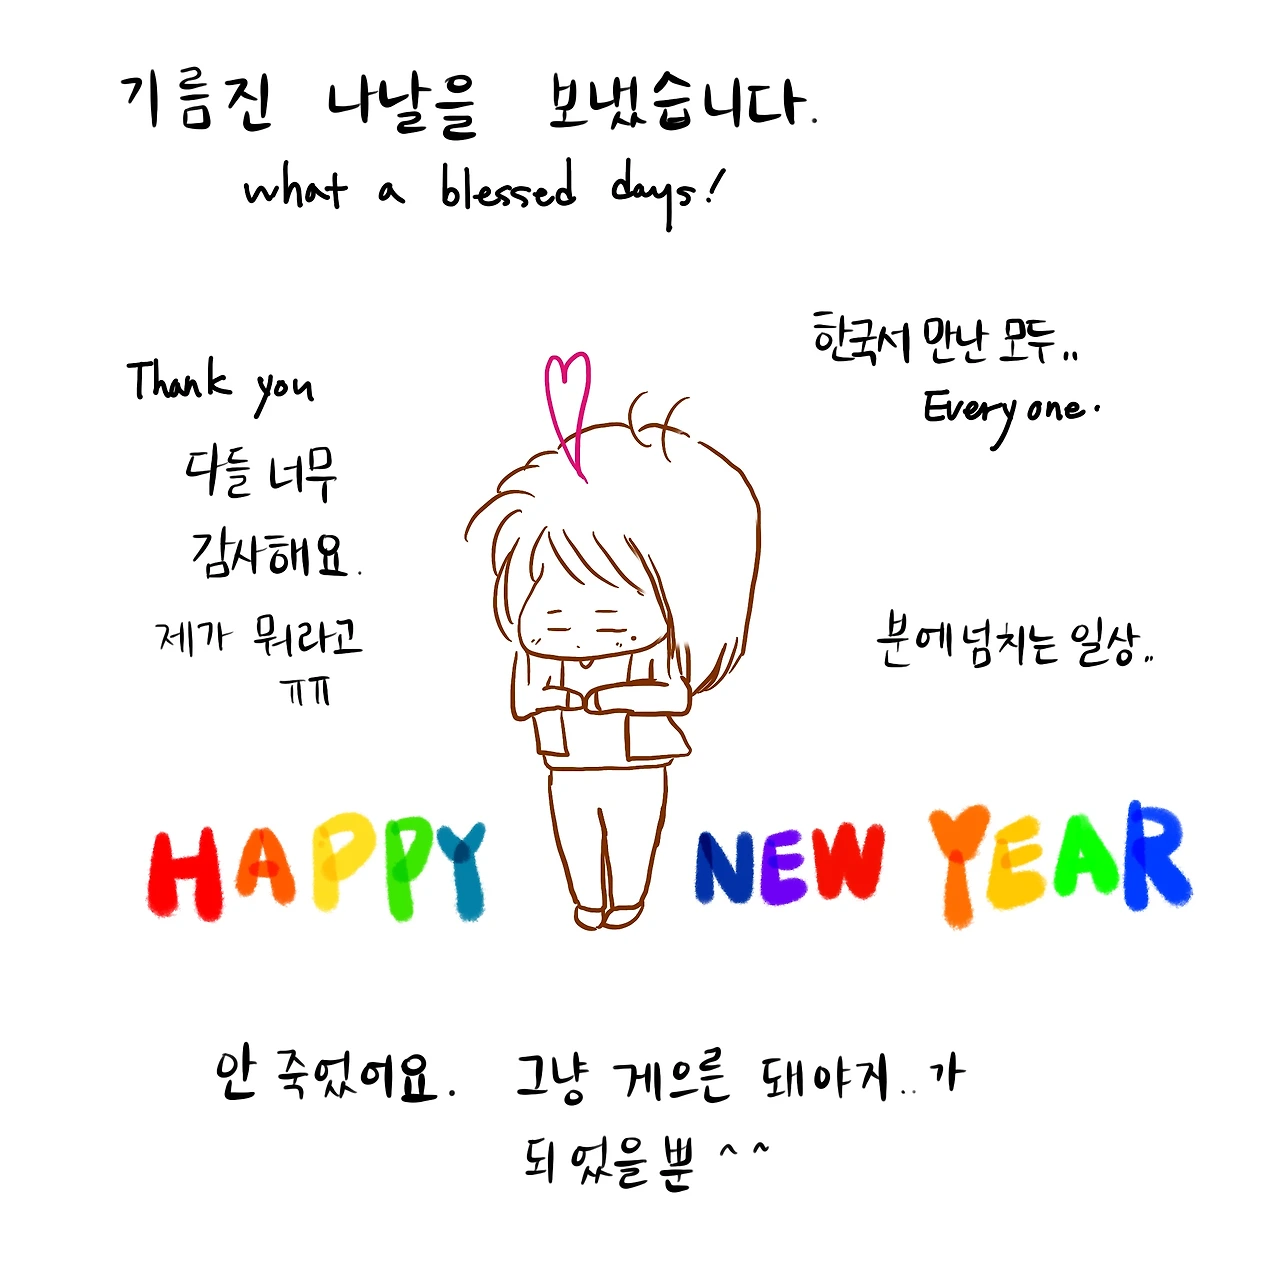 기름진 나날을 보냈습니다.
what a blessed days!
한국서 만난 모두..
Everyone.
Thank you
다들 너무
감사해요.
제가 뭐라고
ㅠㅠ
분에넘치는 일상..
HAPPY NEW YEAR
안 죽었어요. 그냥 게으른 돼야지..가
되었을뿐 ^^